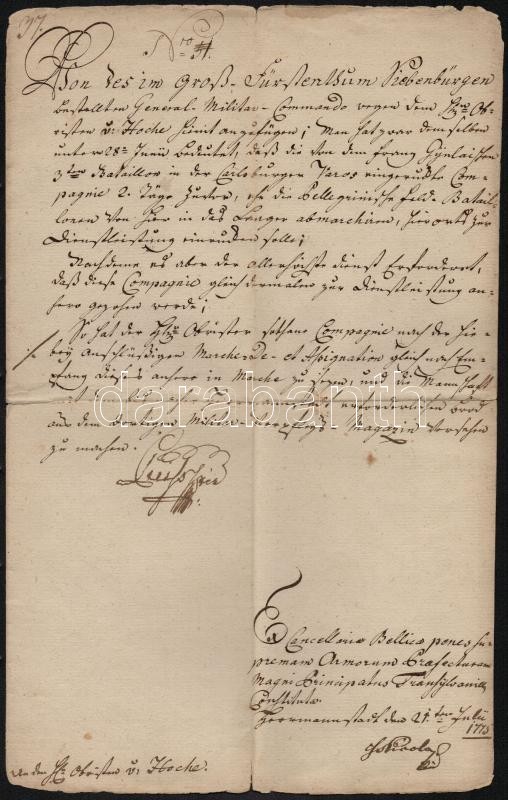 37.
Nro 34.
Von des im Groß-Fürstenthum Siebenbürgen
bestellten General-Militar-Commando wegen dem Hrn Ob-
risten v: Hoche hiemit anzufügen; Man hat zwar demselben
unter 28ten Junii bedeutet, daß die von dem Franz Gyulaischen
3ten Bataillon in der Carlsburger Taros eingeruckte Com-
pagnie 2. Täge zuvor, ehe die Pellegrinische Feld-Batail-
lonen von hier in das Laager abmarchiren, hierorts zur
Dienstleistung einrucken solle;
Nachdeme es aber der allerhöchste Dienst erforderet,
daß diese Compagnie gleich dermalen zur Dienstleistung an-
hero gezohen werde;
So hat der Hr Obrister sothane Compagnie nach der hie-
bey anschlüßigen Marche-Rde et Assignation gleich nach Em-
pfang dieses anhero in Marche zu sezen, und die Mannschaft
erforderlichen Brod
aus dem dortigen Militar-Verpflegs Magazin versehen
zu machen.
darabanth
Ex Cancellaria Bellica penes Su-
premam Armorum Praefecturam
Magni Principatus Transylvaniae
Constituta.
Herrmannstadt den 21ten Julii
1775
An den Hr Obristen v: Hoche.